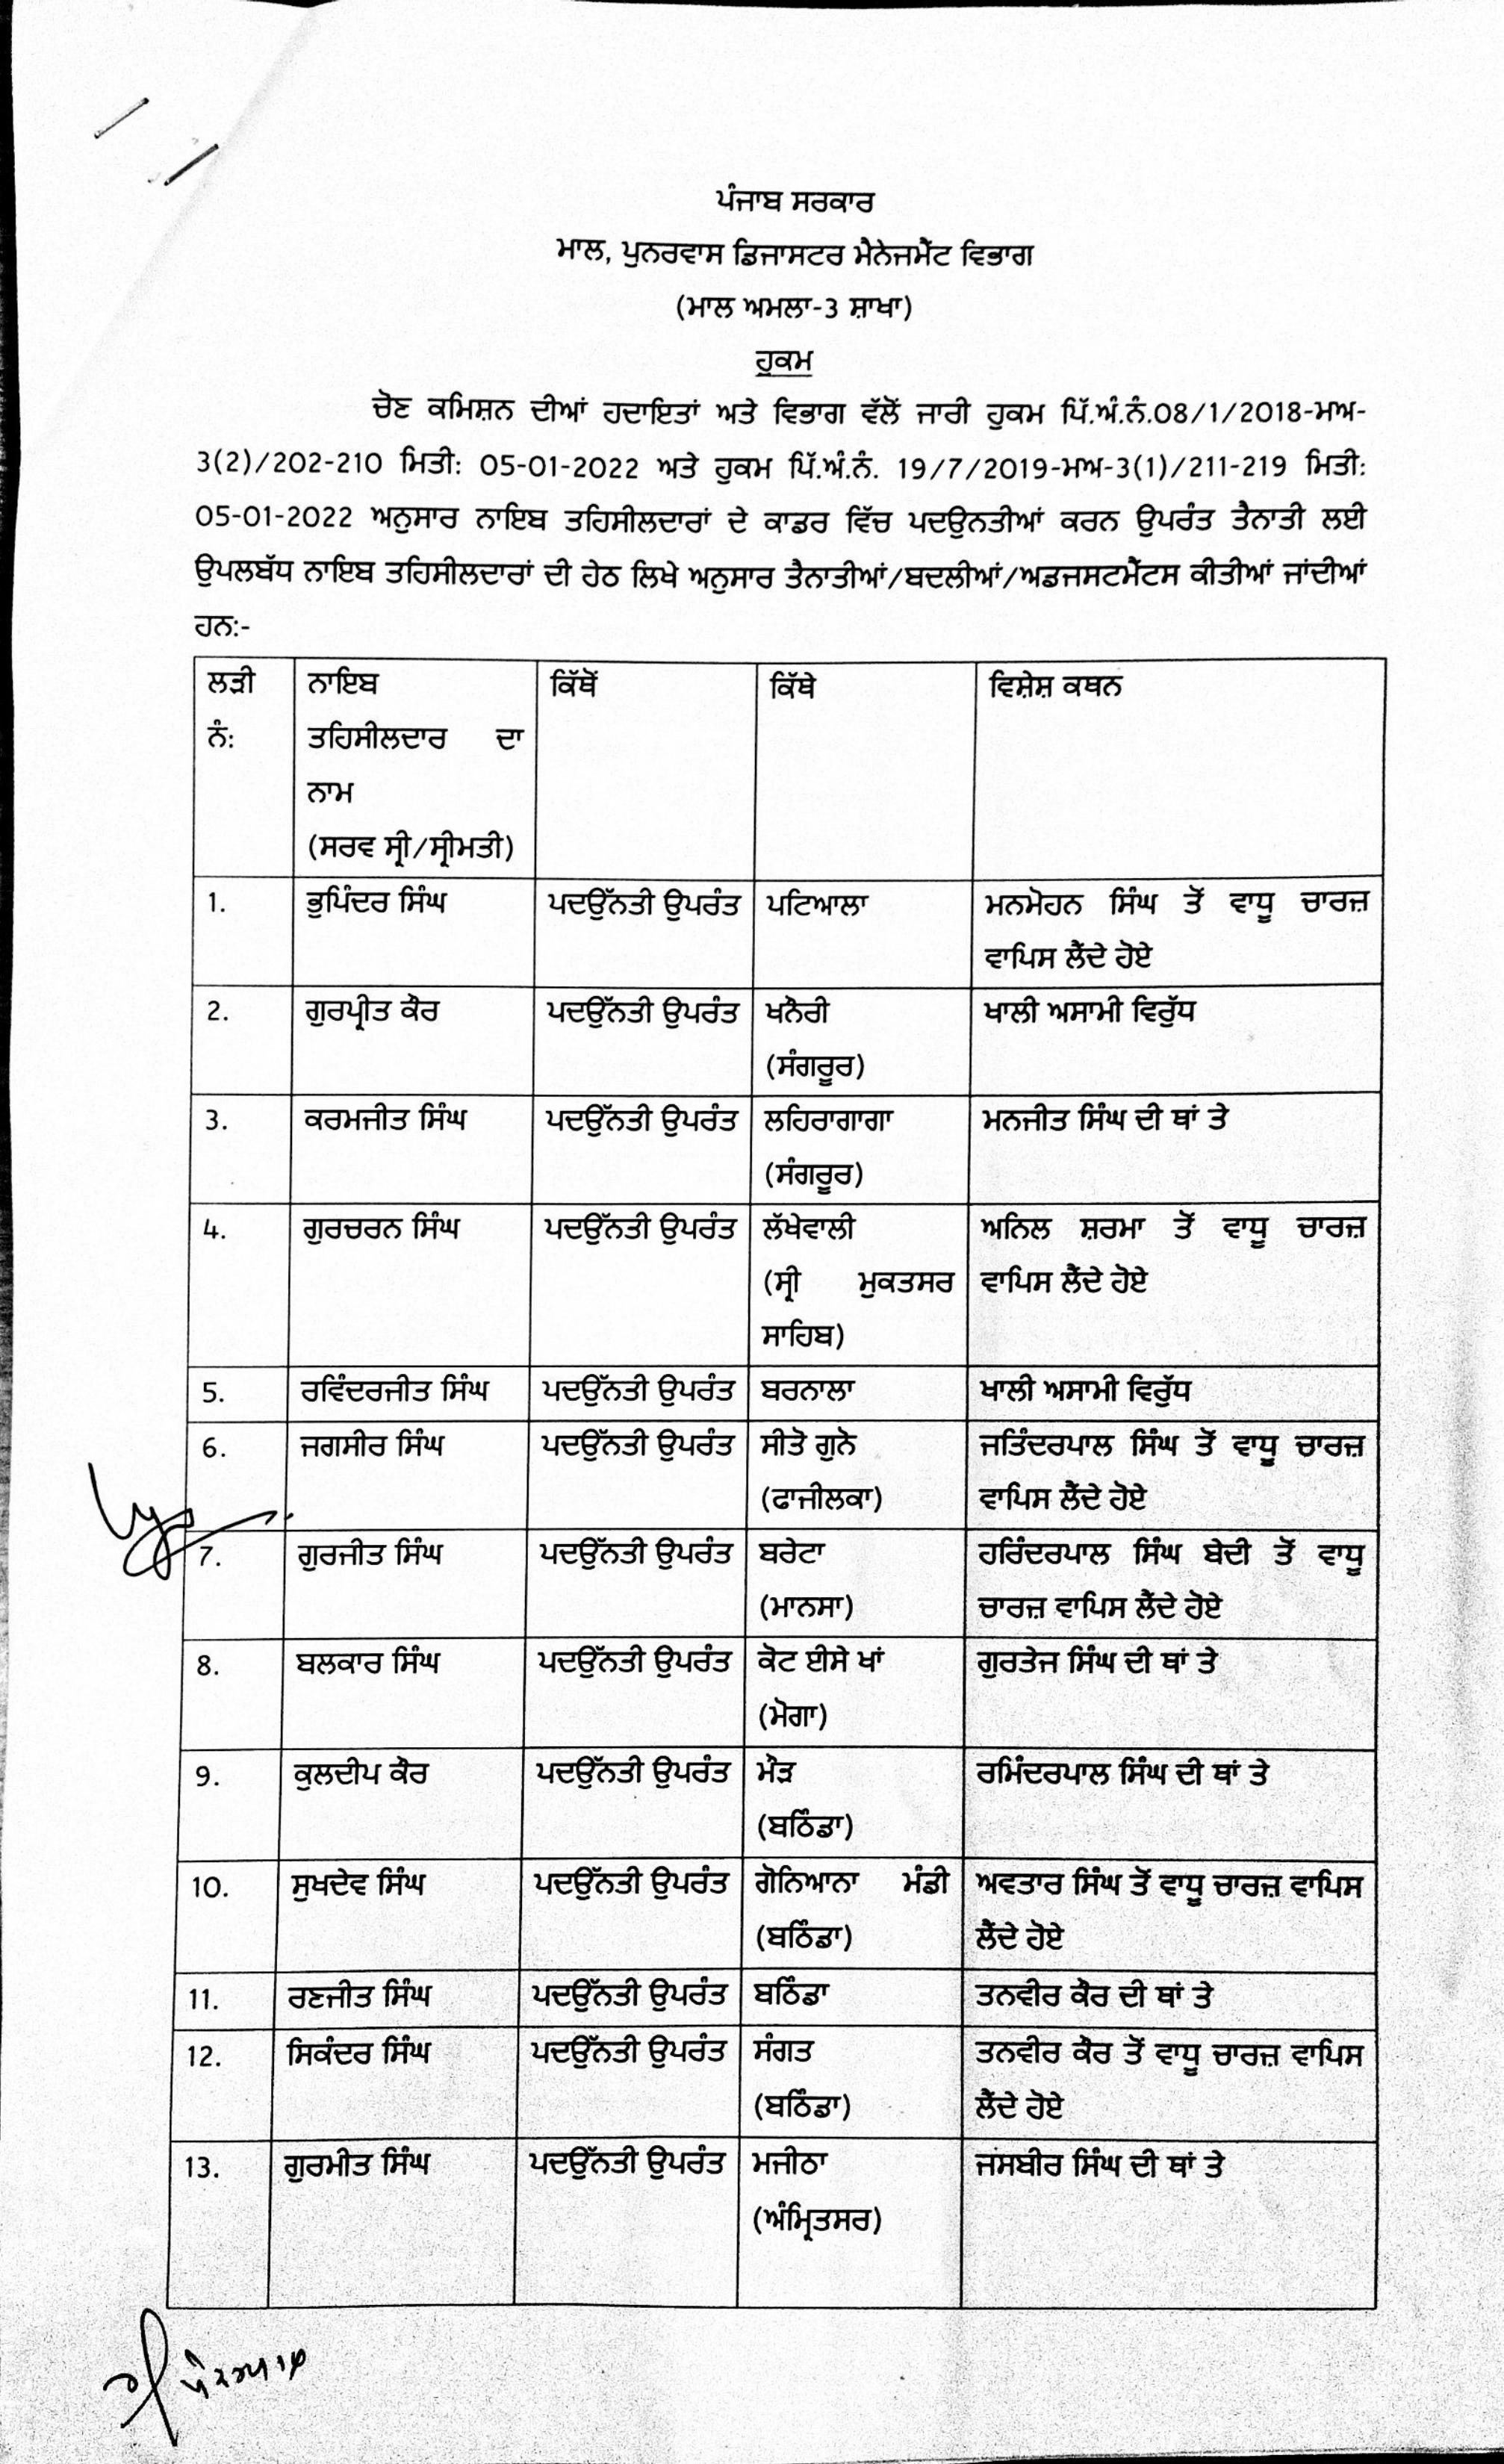 ਪੰਜਾਬ ਸਰਕਾਰ
ਮਾਲ, ਪੁਨਰਵਾਸ ਡਿਜਾਸਟਰ ਮੈਨੇਜਮੈਂਟ ਵਿਭਾਗ
(ਮਾਲ ਅਮਲਾ-3 ਸ਼ਾਖਾ)
ਹੁਕਮ
ਚੋਣ ਕਮਿਸ਼ਨ ਦੀਆਂ ਹਦਾਇਤਾਂ ਅਤੇ ਵਿਭਾਗ ਵੱਲੋਂ ਜਾਰੀ ਹੁਕਮ ਪਿੱ.ਅੰ.ਨੰ.08/1/2018-ਮਅ-
3(2)/202-210 ਮਿਤੀ: 05-01-2022 ਅਤੇ ਹੁਕਮ ਪਿੱ.ਅੰ.ਨੰ. 19/7/2019-ਮਅ-3(1)/211-219 ਮਿਤੀ:
05-01-2022 ਅਨੁਸਾਰ ਨਾਇਬ ਤਹਿਸੀਲਦਾਰਾਂ ਦੇ ਕਾਡਰ ਵਿੱਚ ਪਦਉਨਤੀਆਂ ਕਰਨ ਉਪਰੰਤ ਤੈਨਾਤੀ ਲਈ
ਉਪਲਬੱਧ ਨਾਇਬ ਤਹਿਸੀਲਦਾਰਾਂ ਦੀ ਹੇਠ ਲਿਖੇ ਅਨੁਸਾਰ ਤੈਨਾਤੀਆਂ/ਬਦਲੀਆਂ/ਅਡਜਸਟਮੈਂਟਸ ਕੀਤੀਆਂ ਜਾਂਦੀਆਂ
ਹਨ:-
ਲੜੀ ਨਾਇਬ ਕਿੱਥੋਂ ਕਿੱਥੇ ਵਿਸ਼ੇਸ਼ ਕਥਨ
ਨੰ: ਤਹਿਸੀਲਦਾਰ ਦਾ
ਨਾਮ
(ਸਰਵ ਸ੍ਰੀ/ਸ੍ਰੀਮਤੀ)
1. ਭੁਪਿੰਦਰ ਸਿੰਘ ਪਦਉੱਨਤੀ ਉਪਰੰਤ ਪਟਿਆਲਾ ਮਨਮੋਹਨ ਸਿੰਘ ਤੋਂ ਵਾਧੂ ਚਾਰਜ਼
ਵਾਪਿਸ ਲੈਂਦੇ ਹੋਏ
2. ਗੁਰਪ੍ਰੀਤ ਕੌਰ ਪਦਉੱਨਤੀ ਉਪਰੰਤ ਖਨੌਰੀ ਖਾਲੀ ਅਸਾਮੀ ਵਿਰੁੱਧ
(ਸੰਗਰੂਰ)
3. ਕਰਮਜੀਤ ਸਿੰਘ ਪਦਉੱਨਤੀ ਉਪਰੰਤ ਲਹਿਰਾਗਾਗਾ ਮਨਜੀਤ ਸਿੰਘ ਦੀ ਥਾਂ ਤੇ
(ਸੰਗਰੂਰ)
4. ਗੁਰਚਰਨ ਸਿੰਘ ਪਦਉੱਨਤੀ ਉਪਰੰਤ ਲੱਖੇਵਾਲੀ ਅਨਿਲ ਸ਼ਰਮਾ ਤੋਂ ਵਾਧੂ ਚਾਰਜ਼
(ਸ੍ਰੀ ਮੁਕਤਸਰ ਵਾਪਿਸ ਲੈਂਦੇ ਹੋਏ
ਸਾਹਿਬ)
5. ਰਵਿੰਦਰਜੀਤ ਸਿੰਘ ਪਦਉੱਨਤੀ ਉਪਰੰਤ ਬਰਨਾਲਾ ਖਾਲੀ ਅਸਾਮੀ ਵਿਰੁੱਧ
6. ਜਗਸੀਰ ਸਿੰਘ ਪਦਉੱਨਤੀ ਉਪਰੰਤ ਸੀਤੋ ਗੁਨੋ ਜਤਿੰਦਰਪਾਲ ਸਿੰਘ ਤੋਂ ਵਾਧੂ ਚਾਰਜ਼
(ਫਾਜੀਲਕਾ) ਵਾਪਿਸ ਲੈਂਦੇ ਹੋਏ
7. ਗੁਰਜੀਤ ਸਿੰਘ ਪਦਉੱਨਤੀ ਉਪਰੰਤ ਬਰੇਟਾ ਹਰਿੰਦਰਪਾਲ ਸਿੰਘ ਬੇਦੀ ਤੋਂ ਵਾਧੂ
(ਮਾਨਸਾ) ਚਾਰਜ਼ ਵਾਪਿਸ ਲੈਂਦੇ ਹੋਏ
8. ਬਲਕਾਰ ਸਿੰਘ ਪਦਉੱਨਤੀ ਉਪਰੰਤ ਕੋਟ ਈਸੇ ਖਾਂ ਗੁਰਤੇਜ ਸਿੰਘ ਦੀ ਥਾਂ ਤੇ
(ਮੋਗਾ)
9. ਕੁਲਦੀਪ ਕੌਰ ਪਦਉੱਨਤੀ ਉਪਰੰਤ ਮੌੜ ਰਮਿੰਦਰਪਾਲ ਸਿੰਘ ਦੀ ਥਾਂ ਤੇ
(ਬਠਿੰਡਾ)
10. ਸੁਖਦੇਵ ਸਿੰਘ ਪਦਉੱਨਤੀ ਉਪਰੰਤ ਗੋਨਿਆਨਾ ਮੰਡੀ ਅਵਤਾਰ ਸਿੰਘ ਤੋਂ ਵਾਧੂ ਚਾਰਜ਼ ਵਾਪਿਸ
(ਬਠਿੰਡਾ) ਲੈਂਦੇ ਹੋਏ
11. ਰਣਜੀਤ ਸਿੰਘ ਪਦਉੱਨਤੀ ਉਪਰੰਤ ਬਠਿੰਡਾ ਤਨਵੀਰ ਕੌਰ ਦੀ ਥਾਂ ਤੇ
12. ਸਿਕੰਦਰ ਸਿੰਘ ਪਦਉੱਨਤੀ ਉਪਰੰਤ ਸੰਗਤ ਤਨਵੀਰ ਕੌਰ ਤੋਂ ਵਾਧੂ ਚਾਰਜ਼ ਵਾਪਿਸ
(ਬਠਿੰਡਾ) ਲੈਂਦੇ ਹੋਏ
13. ਗੁਰਮੀਤ ਸਿੰਘ ਪਦਉੱਨਤੀ ਉਪਰੰਤ ਮਜੀਠਾ ਜਸਬੀਰ ਸਿੰਘ ਦੀ ਥਾਂ ਤੇ
(ਅੰਮ੍ਰਿਤਸਰ)